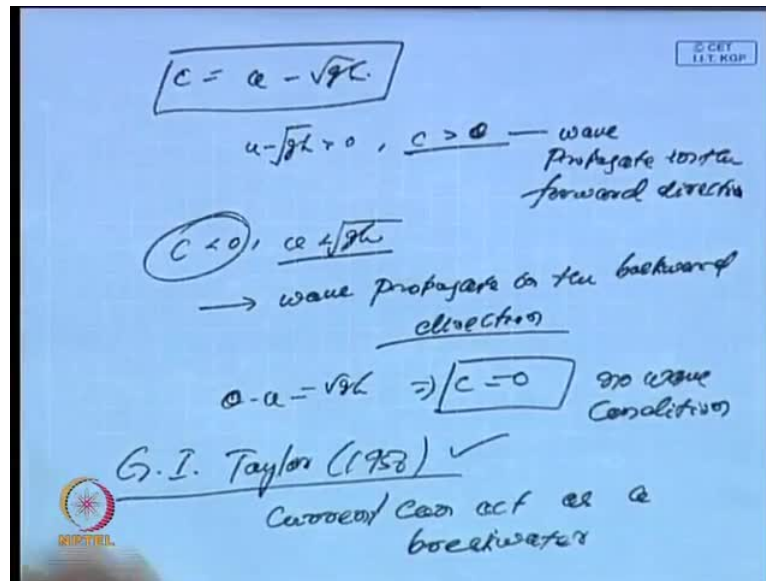 © CET
I.I.T. KGP
C = u - √gh.
u - √gh > 0, C > 0 — wave
Propagate in the
forward direction
C < 0, u < √gh
→ wave propagate in the backward
direction
u = √gh ⇒ C = 0 no wave
Condition
G. I. Taylor (1958) ✓
Current can act as a
breakwater
NPTEL